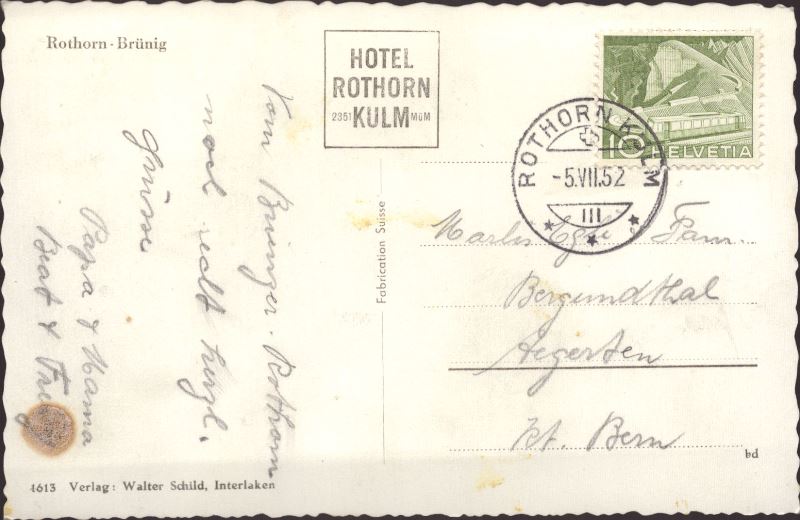 Rothorn - Brünig
HOTEL
ROTHORN
2351 KULM MüM
ROTHORN KULM
-5.VII.52
III
10 HELVETIA
Vom Brienzer. Rothorn
noch recht herzl.
Grüsse
Papa & Mama
Beat &
Fabrication Suisse
Egli Fam.
Bergundthal
Aegerten
Kt. Bern
bd
4613 Verlag: Walter Schild, Interlaken